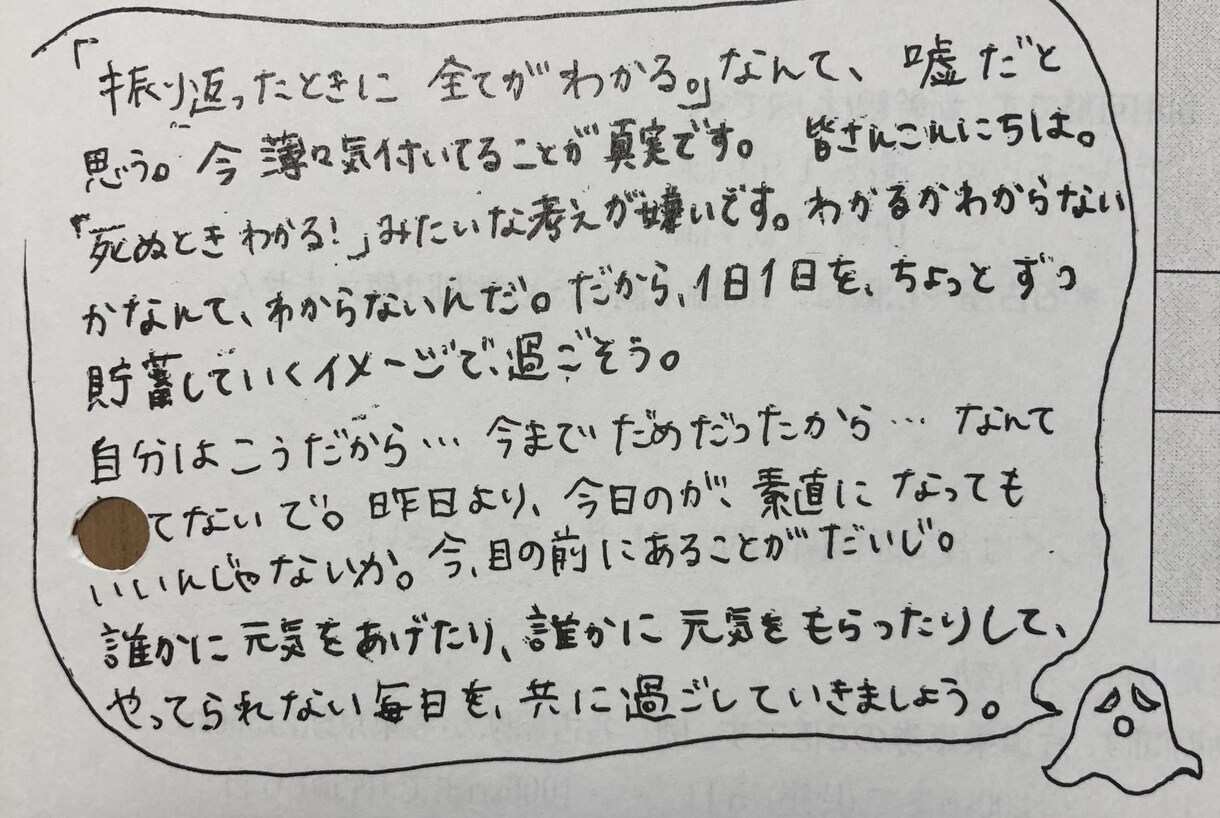 「振り返ったときに 全てがわかる。」なんて、嘘だと
思う。今薄々気付いてることが真実です。皆さんこんにちは。
「死ぬときわかる!」みたいな考えが嫌いです。わかるかわからない
かなんて、わからないんだ。だから、1日1日を、ちょっとずつ
貯蓄していくイメージで、過ごそう。
自分はこうだから… 今までだめだったから… なんて
てないで。昨日より、今日のが、素直になっても
いいんじゃないか。今、目の前にあることがだいじ。
誰かに元気をあげたり、誰かに元気をもらったりして、
やってられない毎日を、共に過ごしていきましょう。